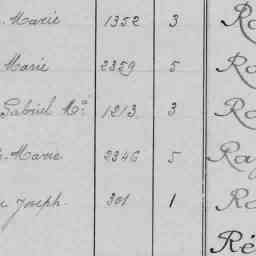 Marie 1352 3 Ro
Marie 2359 5 Ro
Gabriel Mie 1213 3 Ro
Marie 2346 5 Ray
Joseph 301 1 Ro
Ré